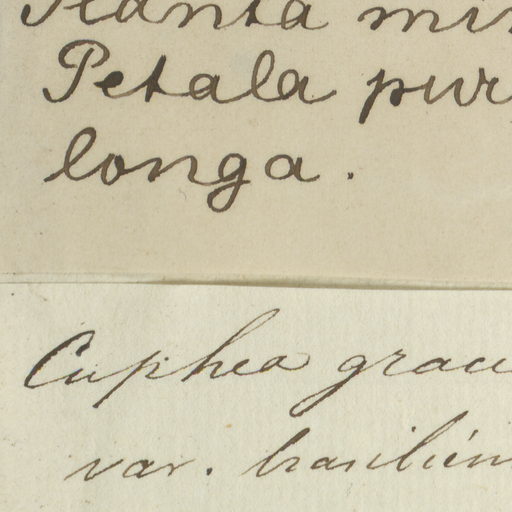 Planta min
Petala pur
longa.
Cuphea grac
var. brasilien